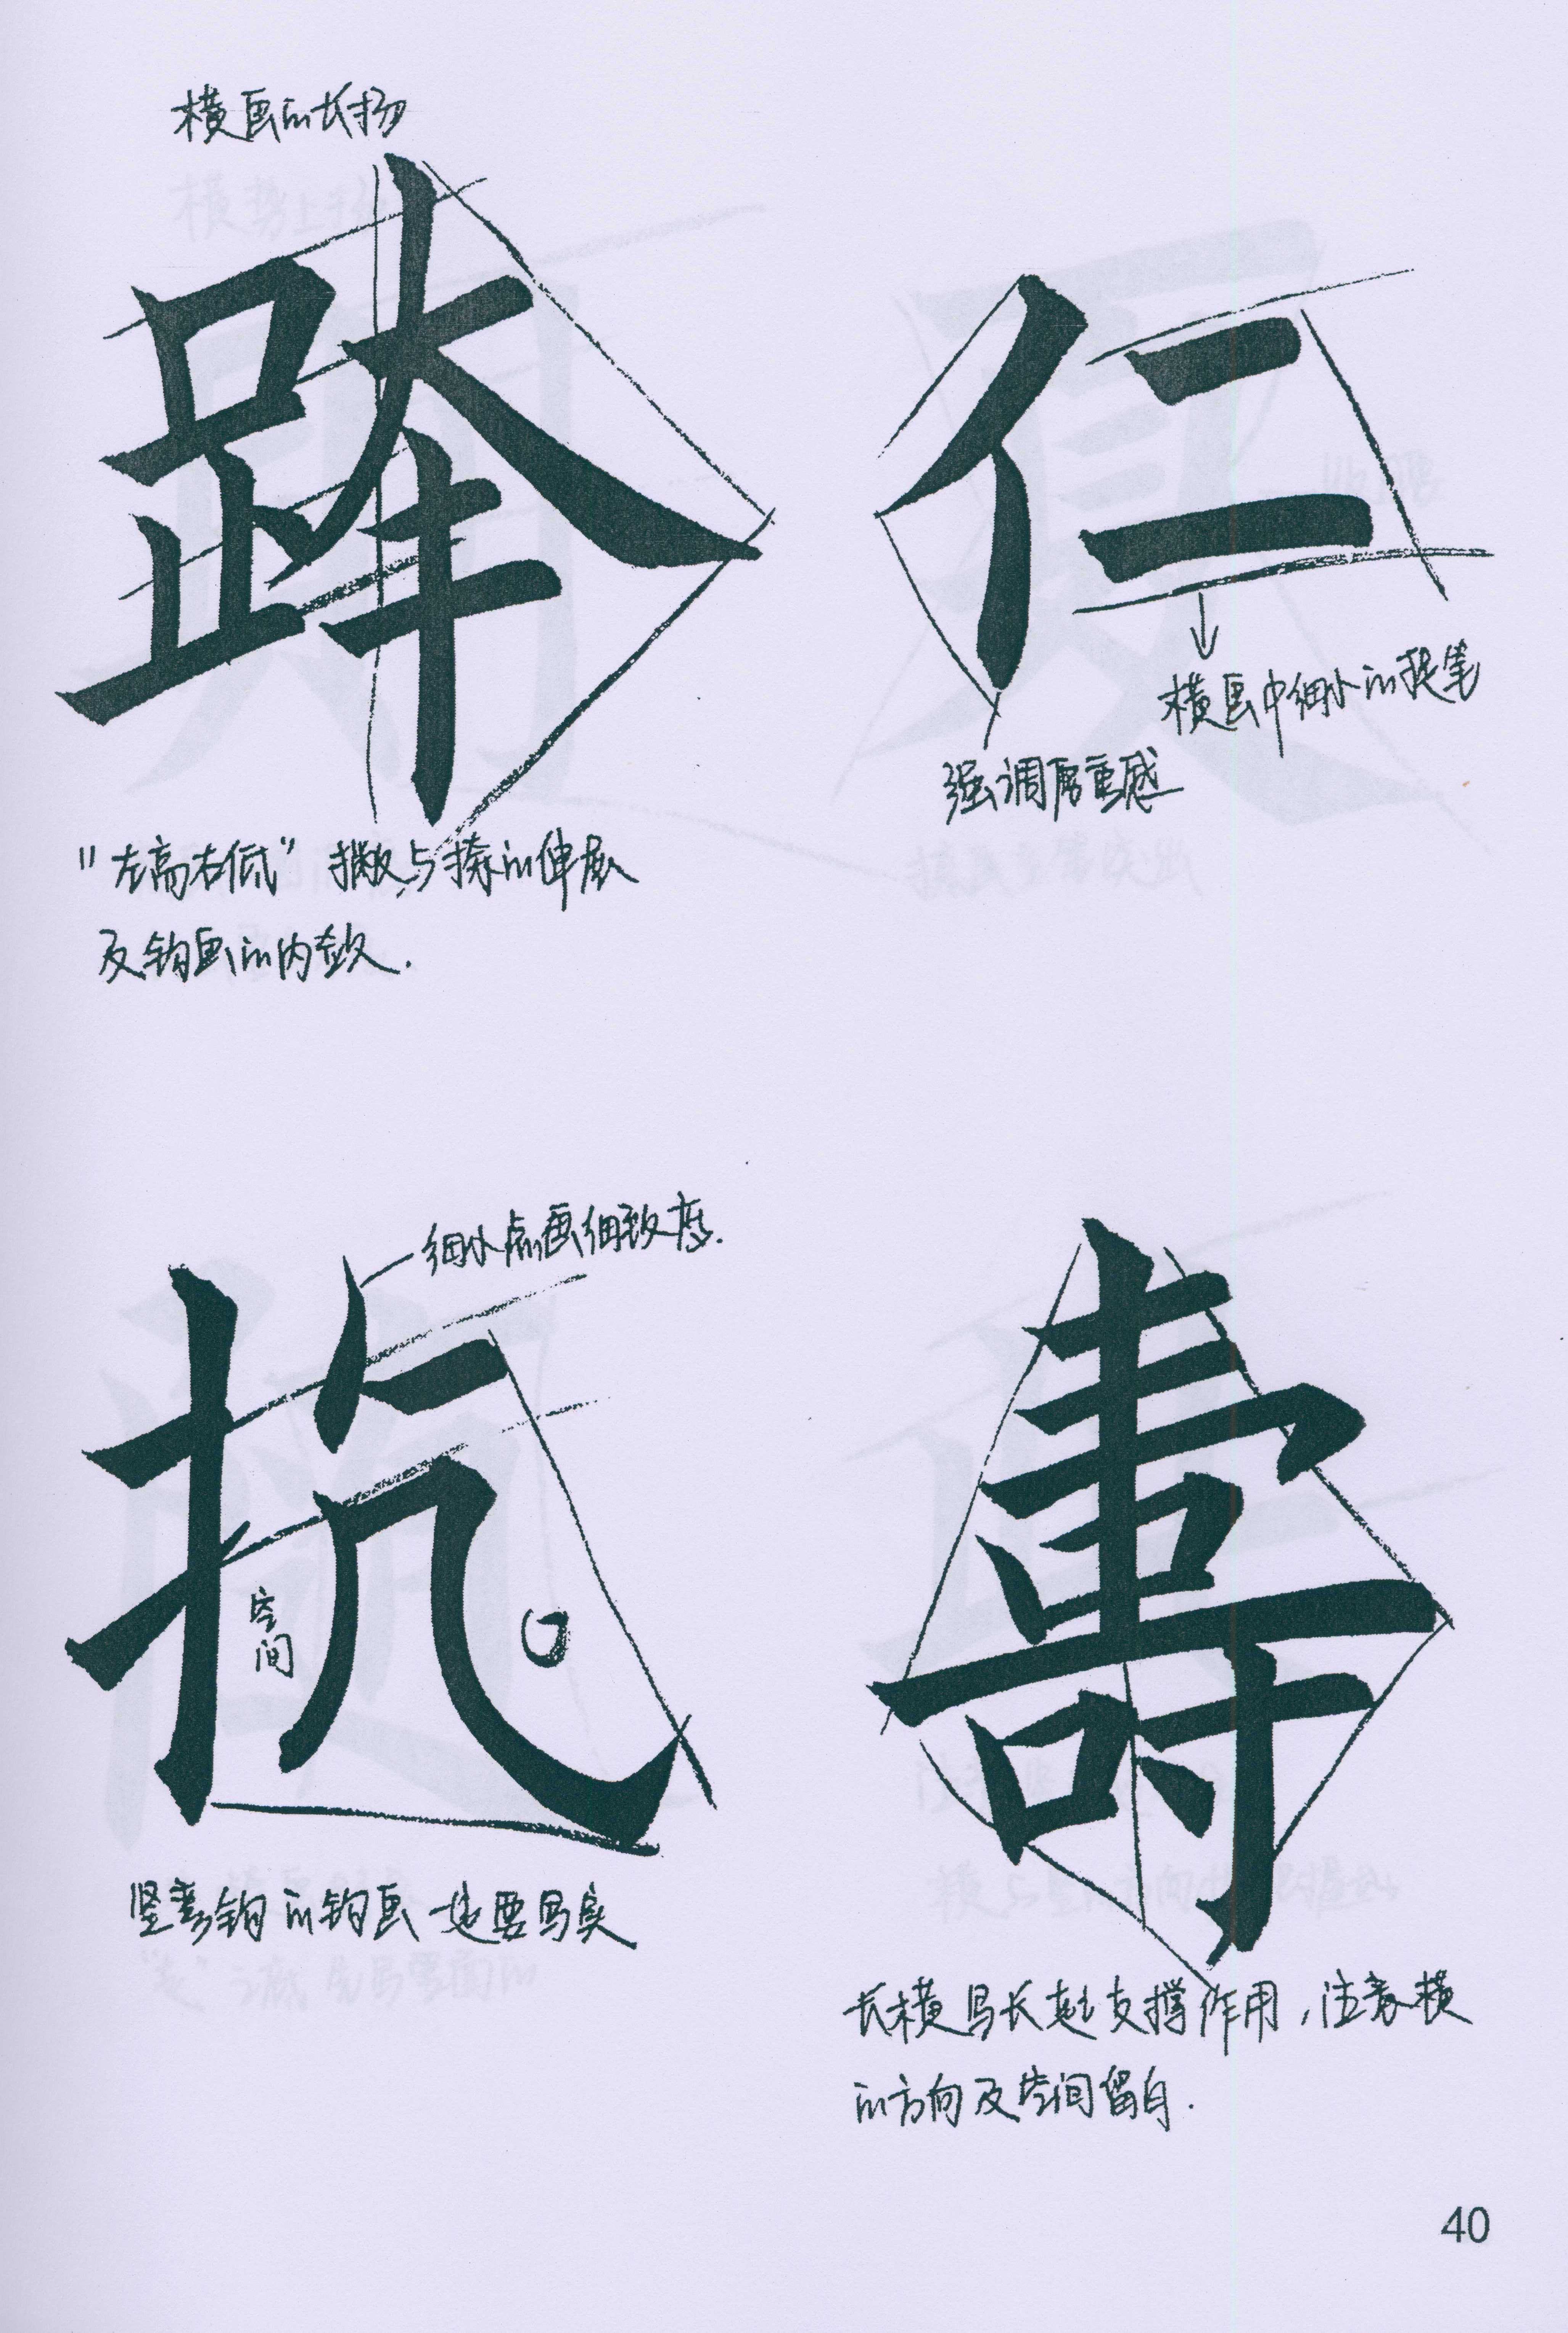 横画的长扬
跨
仁
横画中细小的提笔
强调厚重感
"左高右低" 撇与捺的伸展
及钩画的内敛.
细小点画细致度.
抗
空间
壽
竖弯钩的钩画一定要写实
长横写长起支撑作用,注意横
的方向及空间留白.
40